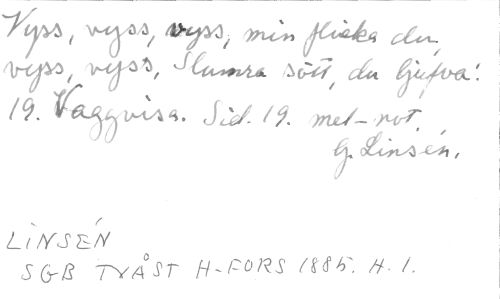 Vyss, vyss, vyss, min flicka du,
vyss, vyss, Slumra sött, du ljufva!
19. Vaggvisa. Sid. 19. mel-not.
G. Linsén.
LINSÉN
SGB TVÅST H-FORS 1885. H. 1.